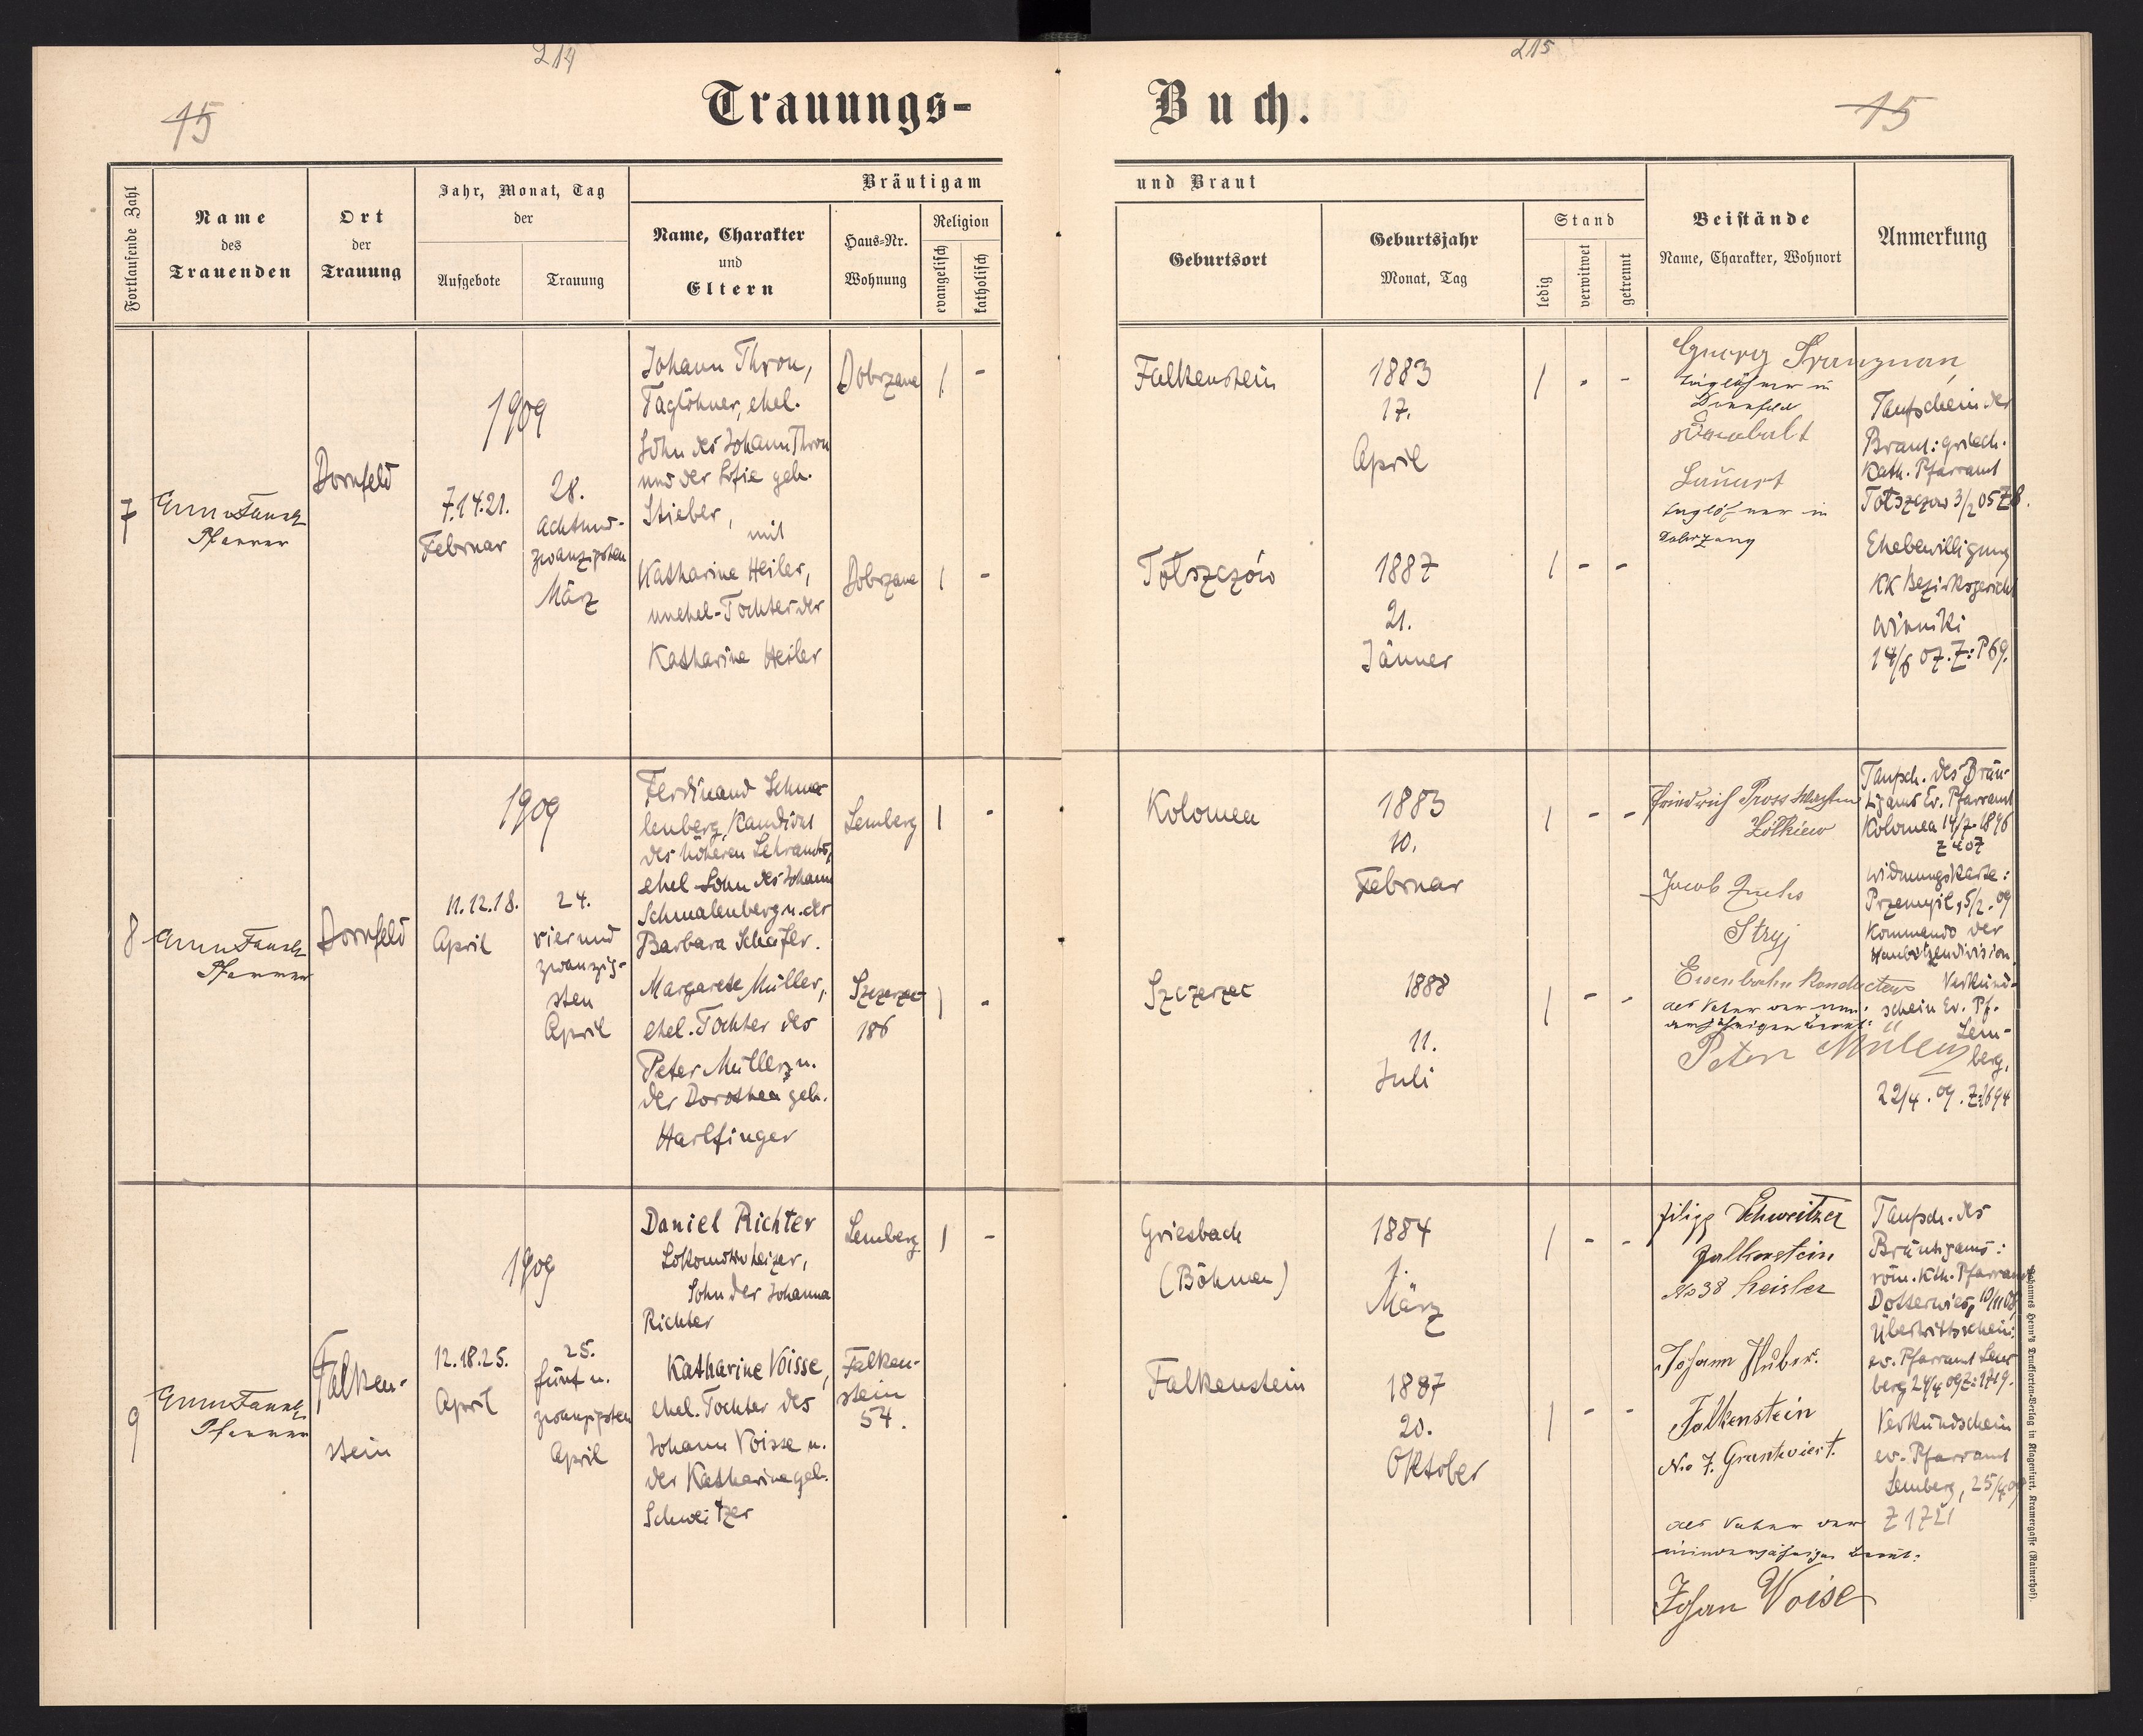 214
215
15
15
Trauungs-
Buch.
Fortlaufende Zahl
Name
des
Trauenden
Ort
der
Trauung
Jahr, Monat, Tag
der
Aufgebote
Trauung
Bräutigam
Name, Charakter
und
Eltern
Haus-Nr.
Wohnung
Religion
evangelisch
katholisch
und Braut
Geburtsort
Geburtsjahr
Monat, Tag
Stand
ledig
verwitwet
getrennt
Beistände
Name, Charakter, Wohnort
Anmerkung
7
Pfarrer
Dornfeld
1909
7.14.21.
Februar
28.
achtund-
zwanzigsten
März
Johann Thron,
Taglöhner, ehel.
Sohn des Johann Thron
und der Sofie geb.
Stieber,
mit
Katharine Heiler,
unehel-Tochter der
Katharina Heiler
Dobrzane
Dobrzane
Falkenstein
Tołszczów
1883
17.
April
1887
21.
Jänner
Georg
Taglöhner in
Dornfeld
Taglöhner in
Taufschein der
Braut: griech.
Kath. Pfarramt
Tołszczow 3/2 05 Z 8.
Ehebewilligung
KK Bezirksgericht
Winniki
14/6 07. Z: P 69.
8
Pfarrer
Dornfeld
1909
11.12.18.
April
24.
vierund
zwanzig-
sten
April
Ferdinand Schma-
lenberg, Kandidat
des höheren Lehramts,
ehel Sohn des Johann
Schmalenberg u. der
Barbara Schäfer.
Margarete Müller,
ehel. Tochter des
Peter Müller u.
der Dorothea geb.
Harlfinger
Lemberg
Szczerzec
186
Kolomea
Szczerzec
1883
10.
Februar
1888
11.
Juli
Friedrich Pross
Żółkiew
Jacob Fuchs
Stryj
Eisenbahn Konducteur
der Vater der min-
derjährigen Braut:
Peter Müller
Taufsch. des Bräu-
tigams Ev. Pfarramt
Kolomea 14/7 1896
Z 407
Widmungskarte:
Przemyśl, 5/2. 09
Kommando der
Haubitzendivision.
Verkünd-
schein Ev. Pf.
Lem-
berg,
22/4. 09. Z: 1694
9
Pfarrer
Falken-
stein
1909
12.18.25.
April
25.
fünf u.
zwanzigsten
April
Daniel Richter
Lokomotivheizer,
Sohn der Johanna
Richter
Katharine Voisse,
ehel. Tochter des
Johann Voisse u.
der Katharina geb.
Schweitzer
Lemberg
Falken-
stein
54.
Griesbach
(Böhmen)
Falkenstein
1884
1.
März
1887
20.
Oktober
Filipp Schweitzer
Falkenstein
No 38
Johann Huber.
Falkenstein
No 7. Grundwirt.
der Vater der
minderjährigen Braut:
Johan Voise
Taufsch. des
Bräutigams:
röm. Kth. Pfarramt
Übertrittschein:
ev. Pfarramt Lem-
berg 24/4 09 Z: 1719.
Verkündschein
ev. Pfarramt
Lemberg, 25/4 09
Z 1721
Johannes Heyn's Drucksorten-Verlag in Klagenfurt, Kramergasse (Rainerhof).